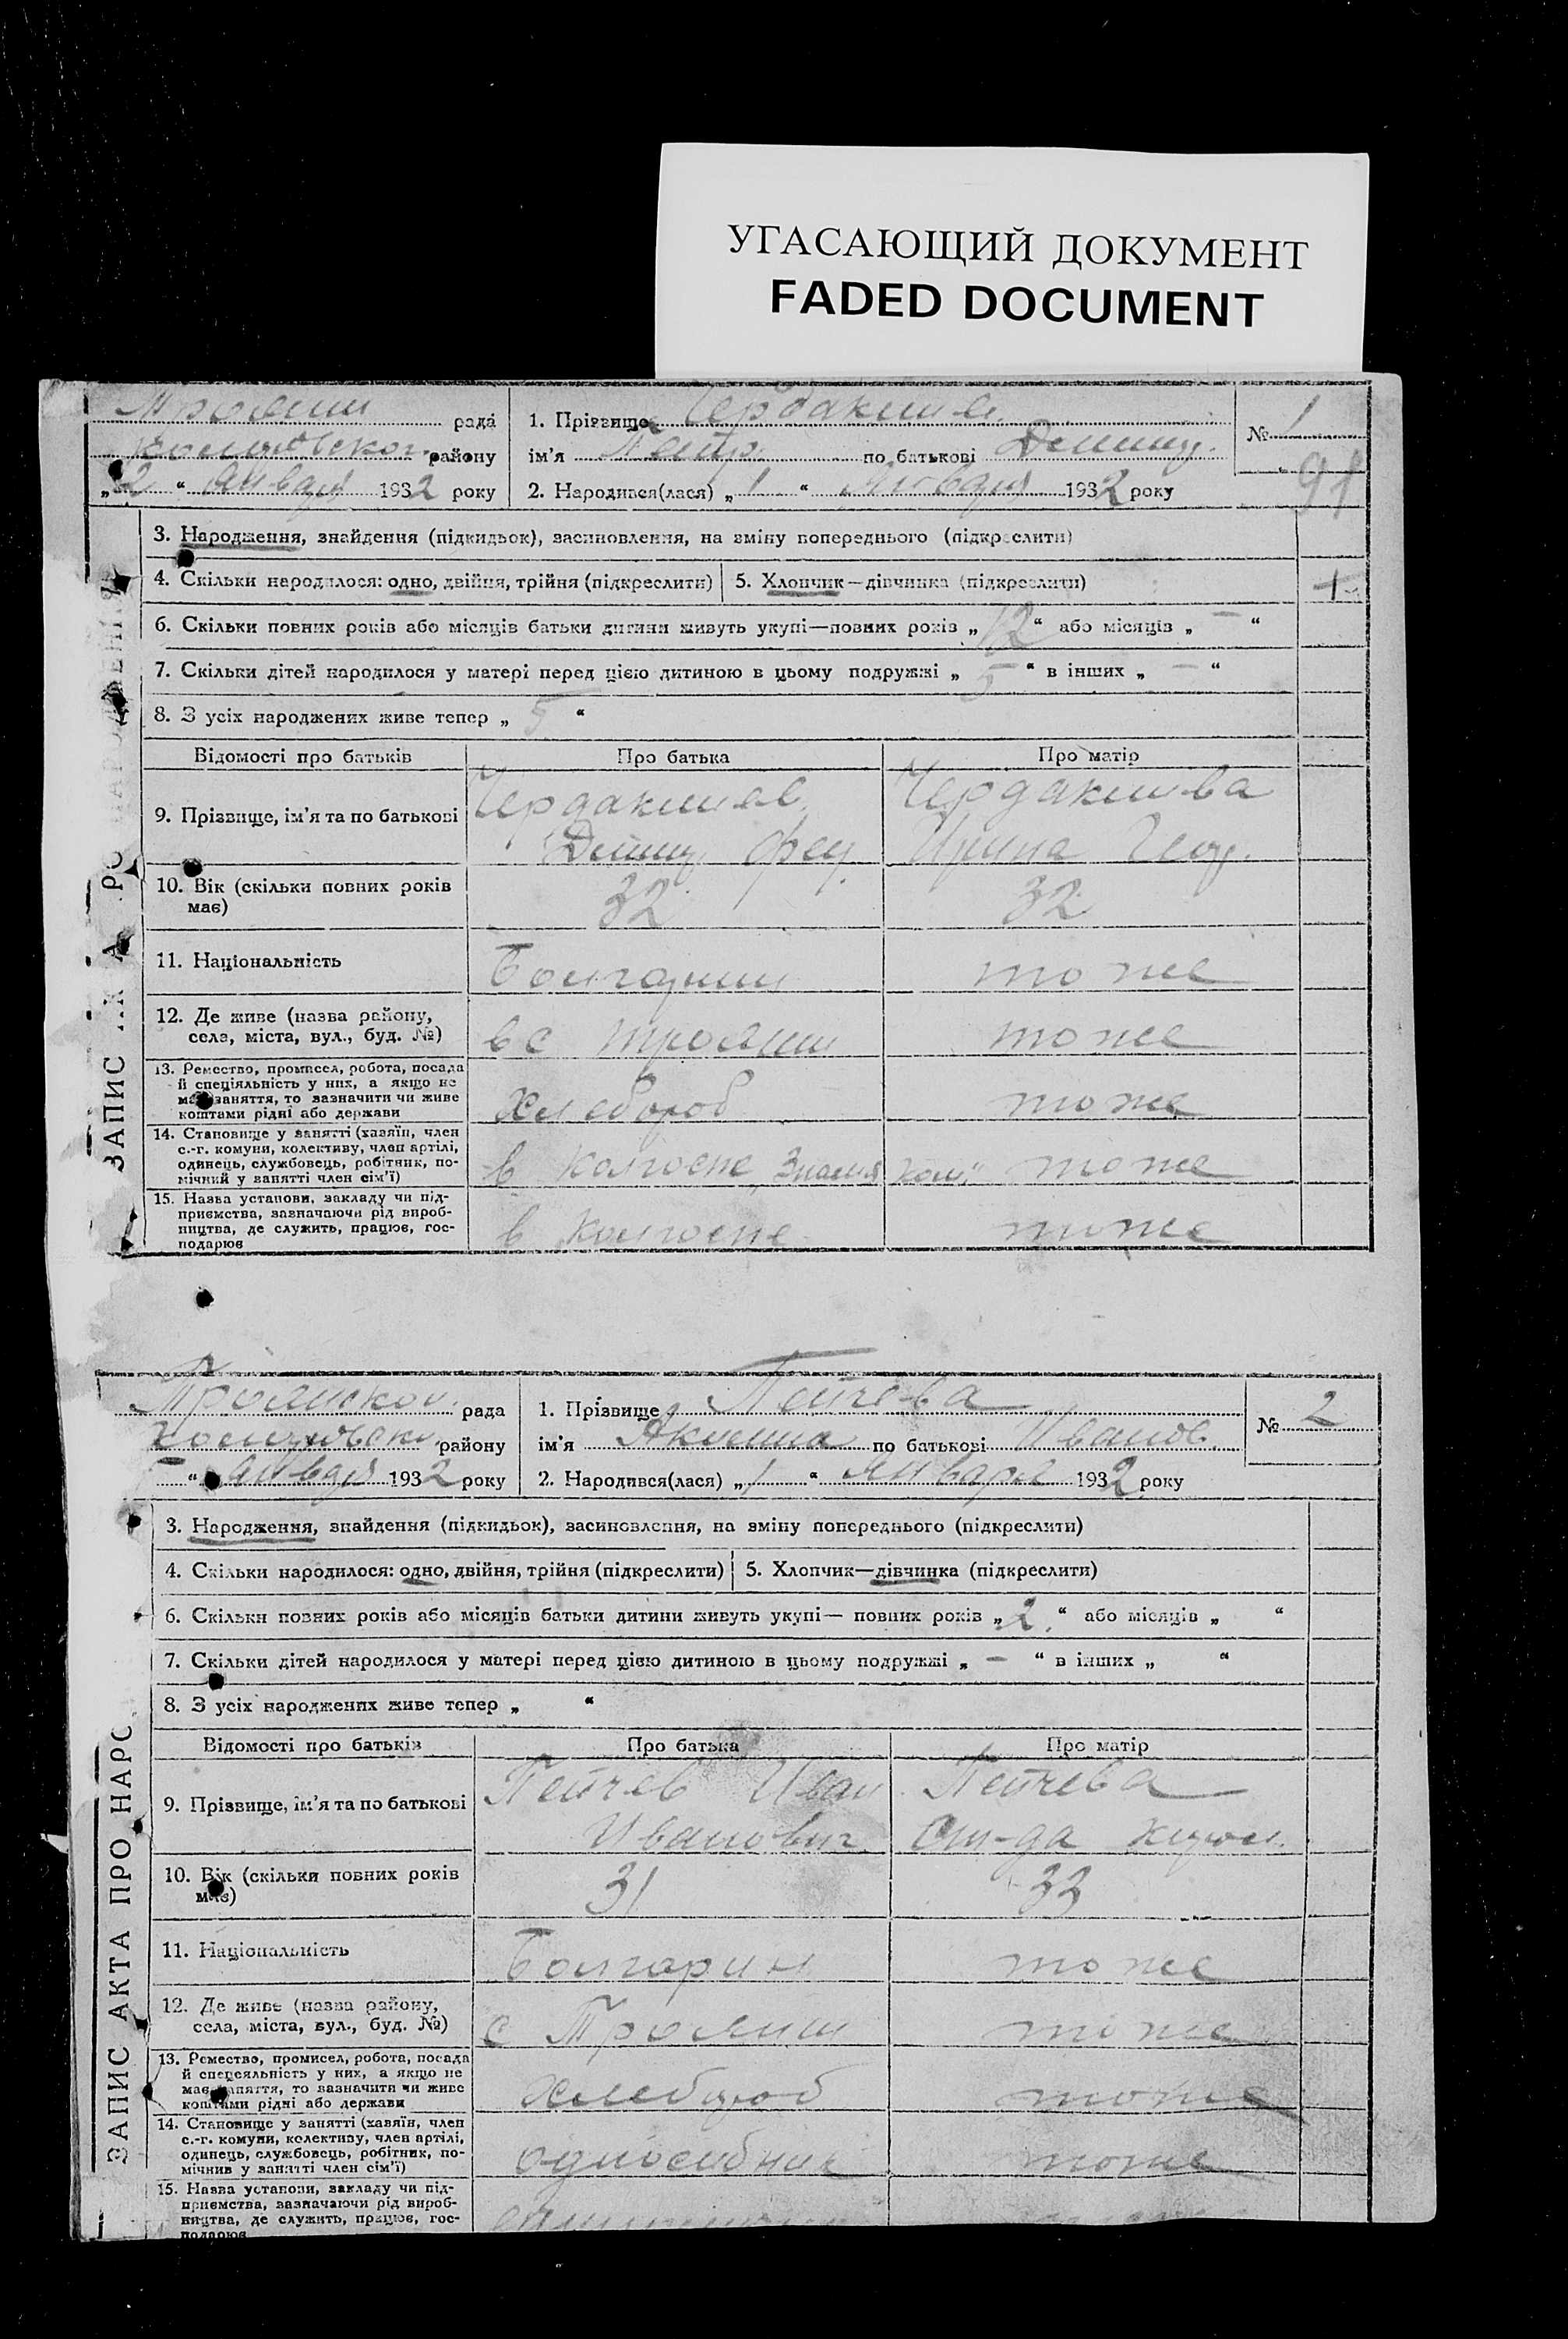 УГАСАЮЩИЙ ДОКУМЕНТ
FADED DOCUMENT
Троян рада
району
"2" Января 1932 року
1. Прізвище
ім'я Петр по батькові
2. Народився(лася) „1“ Января 1932 року
№ 1
91
3. Народження, знайдення (підкидьок), засиновлення, на зміну попереднього (підкреслити)
4. Скільки народилося: одно, двійня, трійня (підкреслити)
5. Хлопчик—дівчинка (підкреслити)
6. Скільки повних років або місяців батьки дитини живуть укупі—повних років „12“ або місяців „—“
7. Скільки дітей народилося у матері перед цією дитиною в цьому подружжі „5“ в інших „—“
8. З усіх народжених живе тепер „5“
Відомості про батьків
Про батька
Про матір
9. Прізвище, ім'я та по батькові
Ирина
10. Вік (скільки повних років має)
32
32
11. Національність
Болгарин
то же
12. Де живе (назва району,
села, міста, вул., буд. №)
в с Троян
то же
13. Ремество, промисел, робота, посада
й спеціяльність у них, а якщо не
має заняття, то зазначити чи живе
коштами рідні або держави
Хлебороб
то же
14. Становище у занятті (хазяїн, член
с.-г. комуни, колективу, член артілі,
одинець, службовець, робітник, по-
мічний у занятті член сім'ї)
в колгоспе
то же
15. Назва установи, закладу чи під-
приємства, зазначаючи рід вироб-
ництва, де служить, працює, гос-
подарює
в колгоспе
то же
ЗАПИС
рада
району
Января 1932 року
1. Прізвище Пейчева
ім'я по батькові Иванов.
2. Народився(лася) „1“ Января 1932 року
№ 2
3. Народження, знайдення (підкидьок), засиновлення, на зміну попереднього (підкреслити)
4. Скільки народилося: одно, двійня, трійня (підкреслити)
5. Хлопчик—дівчинка (підкреслити)
6. Скільки повних років або місяців батьки дитини живуть укупі— повних років „2“ або місяців „ “
7. Скільки дітей народилося у матері перед цією дитиною в цьому подружжі „—“ в інших „ “
8. З усіх народжених живе тепер „ “
Відомості про батьків
Про батька
Про матір
9. Прізвище, ім'я та по батькові
Пейчев Иван
Иванович
Пейчева
10. Вік (скільки повних років
має)
31
33
11. Національність
Болгарин
то же
12. Де живе (назва району,
села, міста, вул., буд. №)
с Троян
то же
13. Ремество, промисел, робота, посада
й спеціяльність у них, а якщо не
має заняття, то зазначити чи живе
коштами рідні або держави
Хлебороб
то же
14. Становище у занятті (хазяїн, член
с.-г. комуни, колективу, член артілі,
одинець, службовець, робітник, по-
мічник у занятті член сім'ї)
однособник
то же
15. Назва установи, закладу чи під-
приємства, зазначаючи рід вироб-
ництва, де служить, працює, гос-
подарює
ЗАПИС АКТА ПРО НАРО